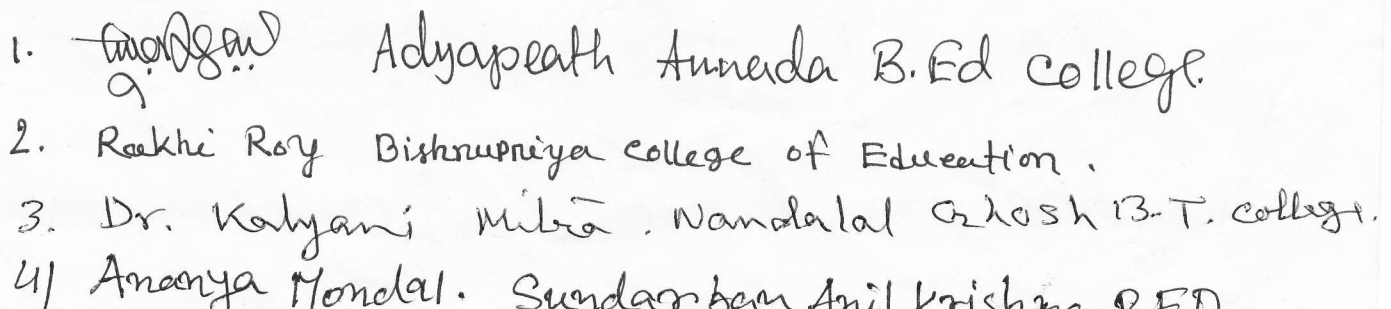 1. Adyapeath Annada B.Ed College.
2. Rakhi Roy Bishnupriya College of Education.
3. Dr. Kalyani Mitra. Nandalal Ghosh B.T. College.
4) Ananya Mondal. Sundarban Anil Krishna B.ED